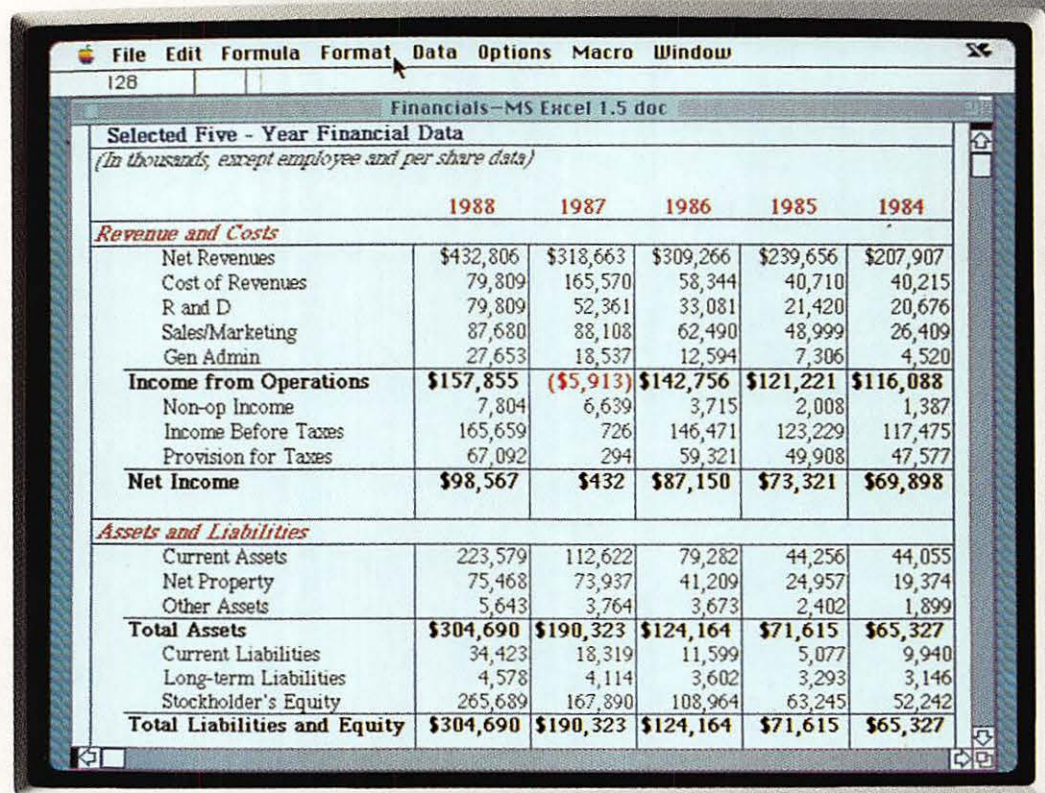 File Edit Formula Format Data Options Macro Window
I28
Financials-MS Excel 1.5 doc
Selected Five - Year Financial Data
(In thousands, except employee and per share data)
1988 1987 1986 1985 1984
Revenue and Costs
Net Revenues $432,806 $318,663 $309,266 $239,656 $207,907
Cost of Revenues 79,809 165,570 58,344 40,710 40,215
R and D 79,809 52,361 33,081 21,420 20,676
Sales/Marketing 87,680 88,108 62,490 48,999 26,409
Gen Admin 27,653 18,537 12,594 7,306 4,520
Income from Operations $157,855 ($5,913) $142,756 $121,221 $116,088
Non-op Income 7,804 6,639 3,715 2,008 1,387
Income Before Taxes 165,659 726 146,471 123,229 117,475
Provision for Taxes 67,092 294 59,321 49,908 47,577
Net Income $98,567 $432 $87,150 $73,321 $69,898
Assets and Liabilities
Current Assets 223,579 112,622 79,282 44,256 44,055
Net Property 75,468 73,937 41,209 24,957 19,374
Other Assets 5,643 3,764 3,673 2,402 1,899
Total Assets $304,690 $190,323 $124,164 $71,615 $65,327
Current Liabilities 34,423 18,319 11,599 5,077 9,940
Long-term Liabilities 4,578 4,114 3,602 3,293 3,146
Stockholder's Equity 265,689 167,890 108,964 63,245 52,242
Total Liabilities and Equity $304,690 $190,323 $124,164 $71,615 $65,327